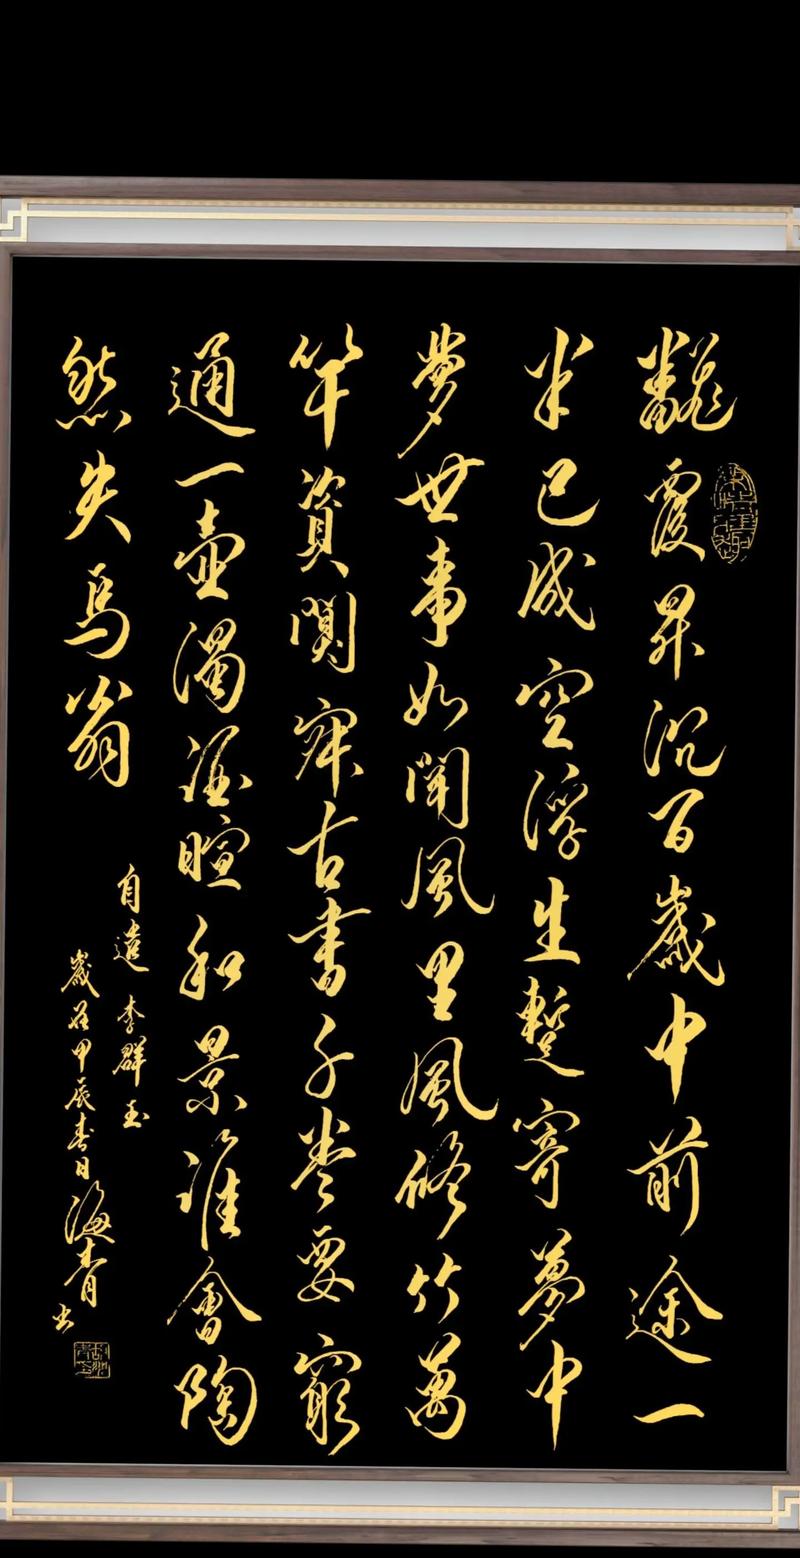 飜覆昇沉百歲中前途一
半已成空浮生暫寄夢中
夢世事如聞風里風修竹萬
竿資闃寂古書千卷要窮
通一壺濁酒暄和景誰會陶
然失馬翁
自遣 李群玉
歲在甲辰春日海青书